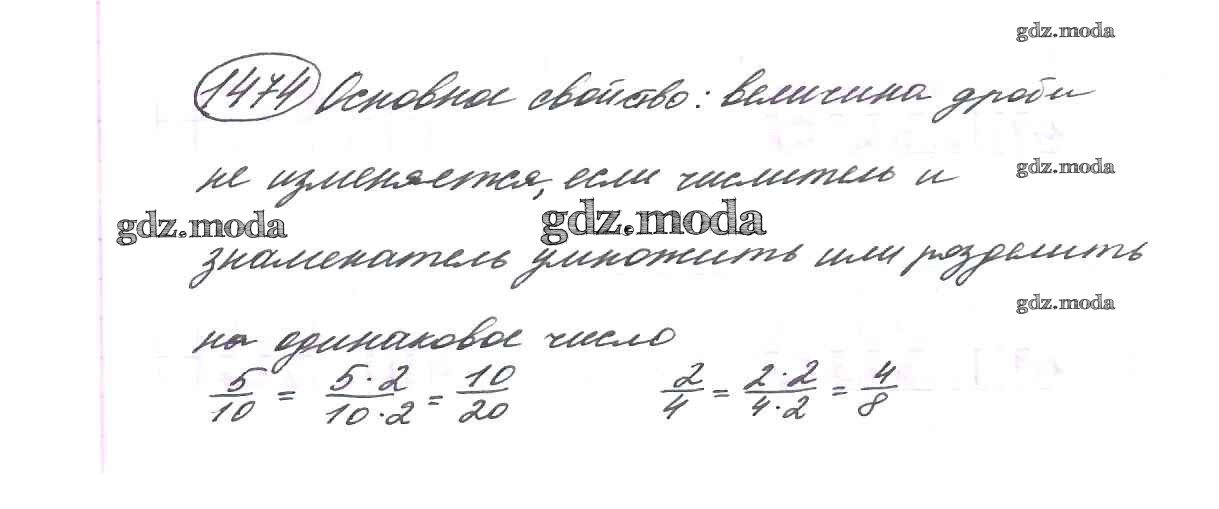 gdz.moda
1474 Основное свойство: величина дроби
не изменяется, если числитель и
gdz.moda
gdz.moda gdz.moda
знаменатель умножить или разделить
gdz.moda
на одинаковое число
5/10 = 5·2/10·2 = 10/20 2/4 = 2·2/4·2 = 4/8